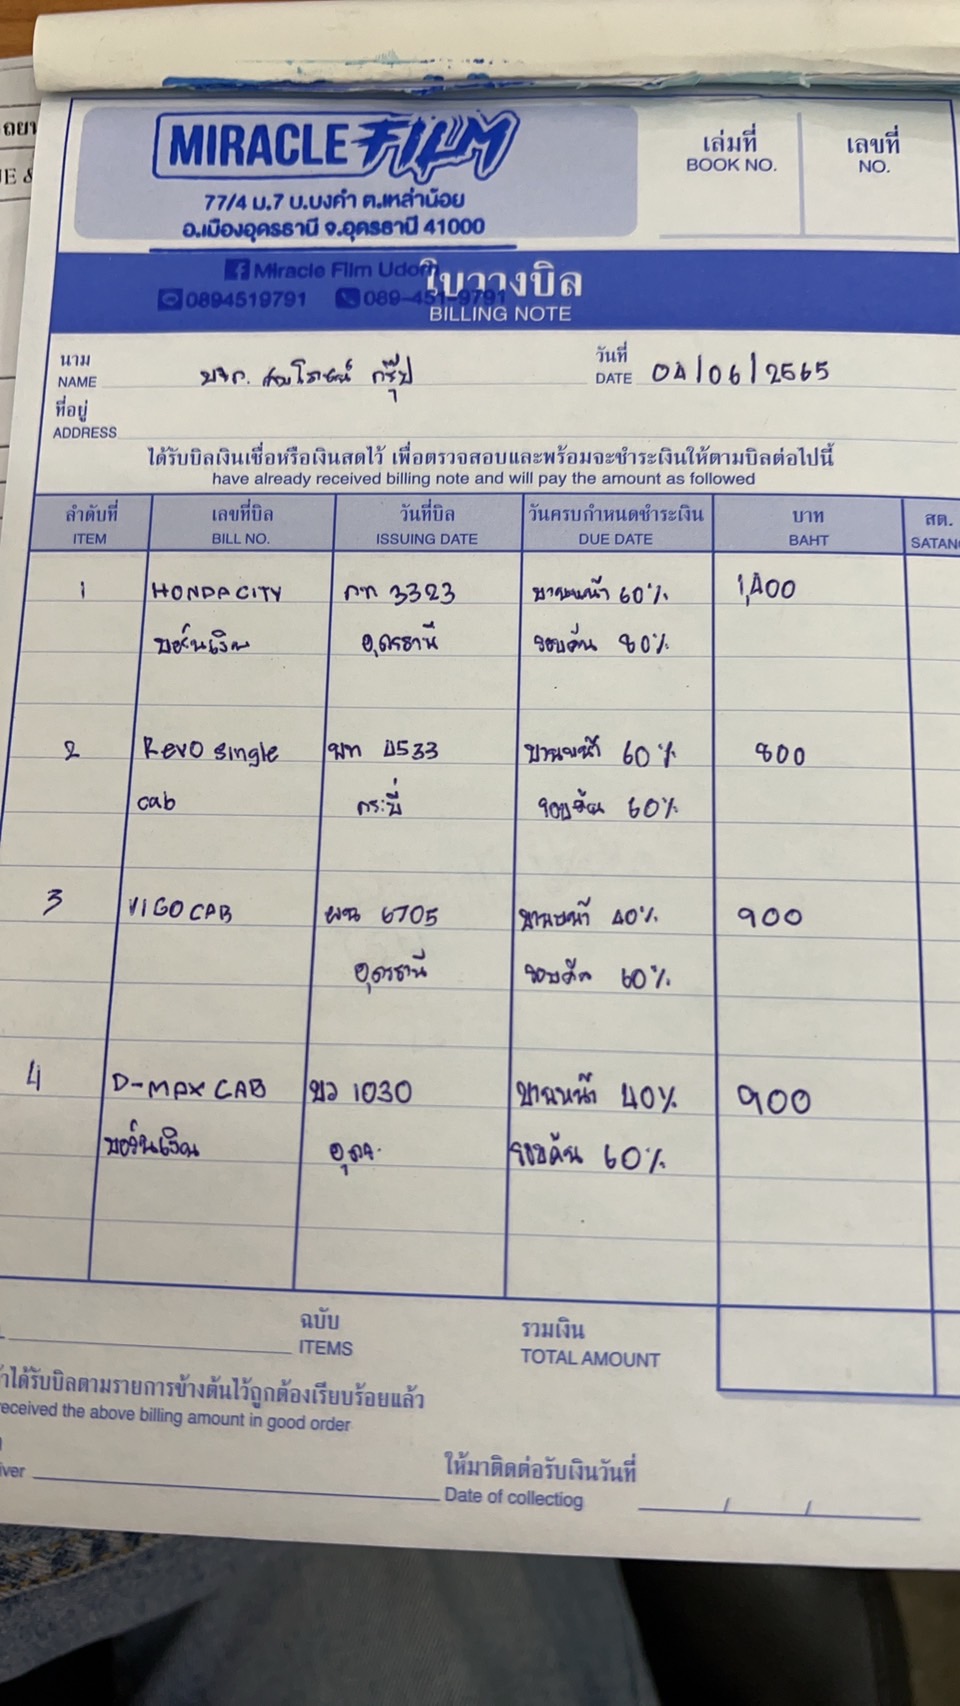 MIRACLE FILM
77/4 ม.7 บ.บงคำ ต.เหล่าน้อย
อ.เมืองอุดรธานี จ.อุดรธานี 41000
Miracle Film Udorn
0894519791 089-451-9791
ใบวางบิล
BILLING NOTE
เล่มที่
BOOK NO.
เลขที่
NO.
นาม
NAME บจก. กรุ๊ป
วันที่
DATE 04/06/2565
ที่อยู่
ADDRESS
ได้รับบิลเงินเชื่อหรือเงินสดไว้ เพื่อตรวจสอบและพร้อมจะชำระเงินให้ตามบิลต่อไปนี้
have already received billing note and will pay the amount as followed
ลำดับที่ เลขที่บิล วันที่บิล วันครบกำหนดชำระเงิน บาท สต.
ITEM BILL NO. ISSUING DATE DUE DATE BAHT SATANG
1 HONDA CITY กท 3323 บานหน้า 60% 1,400
บอร์นเงิน อุดรธานี รอบคัน 80%
2 Revo single 4533 บานหน้า 60% 800
cab กระบี่ รอบคัน 60%
3 VIGO CAB ผฉ 6705 บานหน้า 40% 900
อุดรธานี รอบคัน 60%
4 D-MAX CAB บว 1030 บานหน้า 40% 900
บอร์นเงิน อุดร. รอบคัน 60%
ฉบับ
ITEMS
รวมเงิน
TOTAL AMOUNT
ได้รับบิลตามรายการข้างต้นไว้ถูกต้องเรียบร้อยแล้ว
received the above billing amount in good order
ให้มาติดต่อรับเงินวันที่
Date of collectiog / /